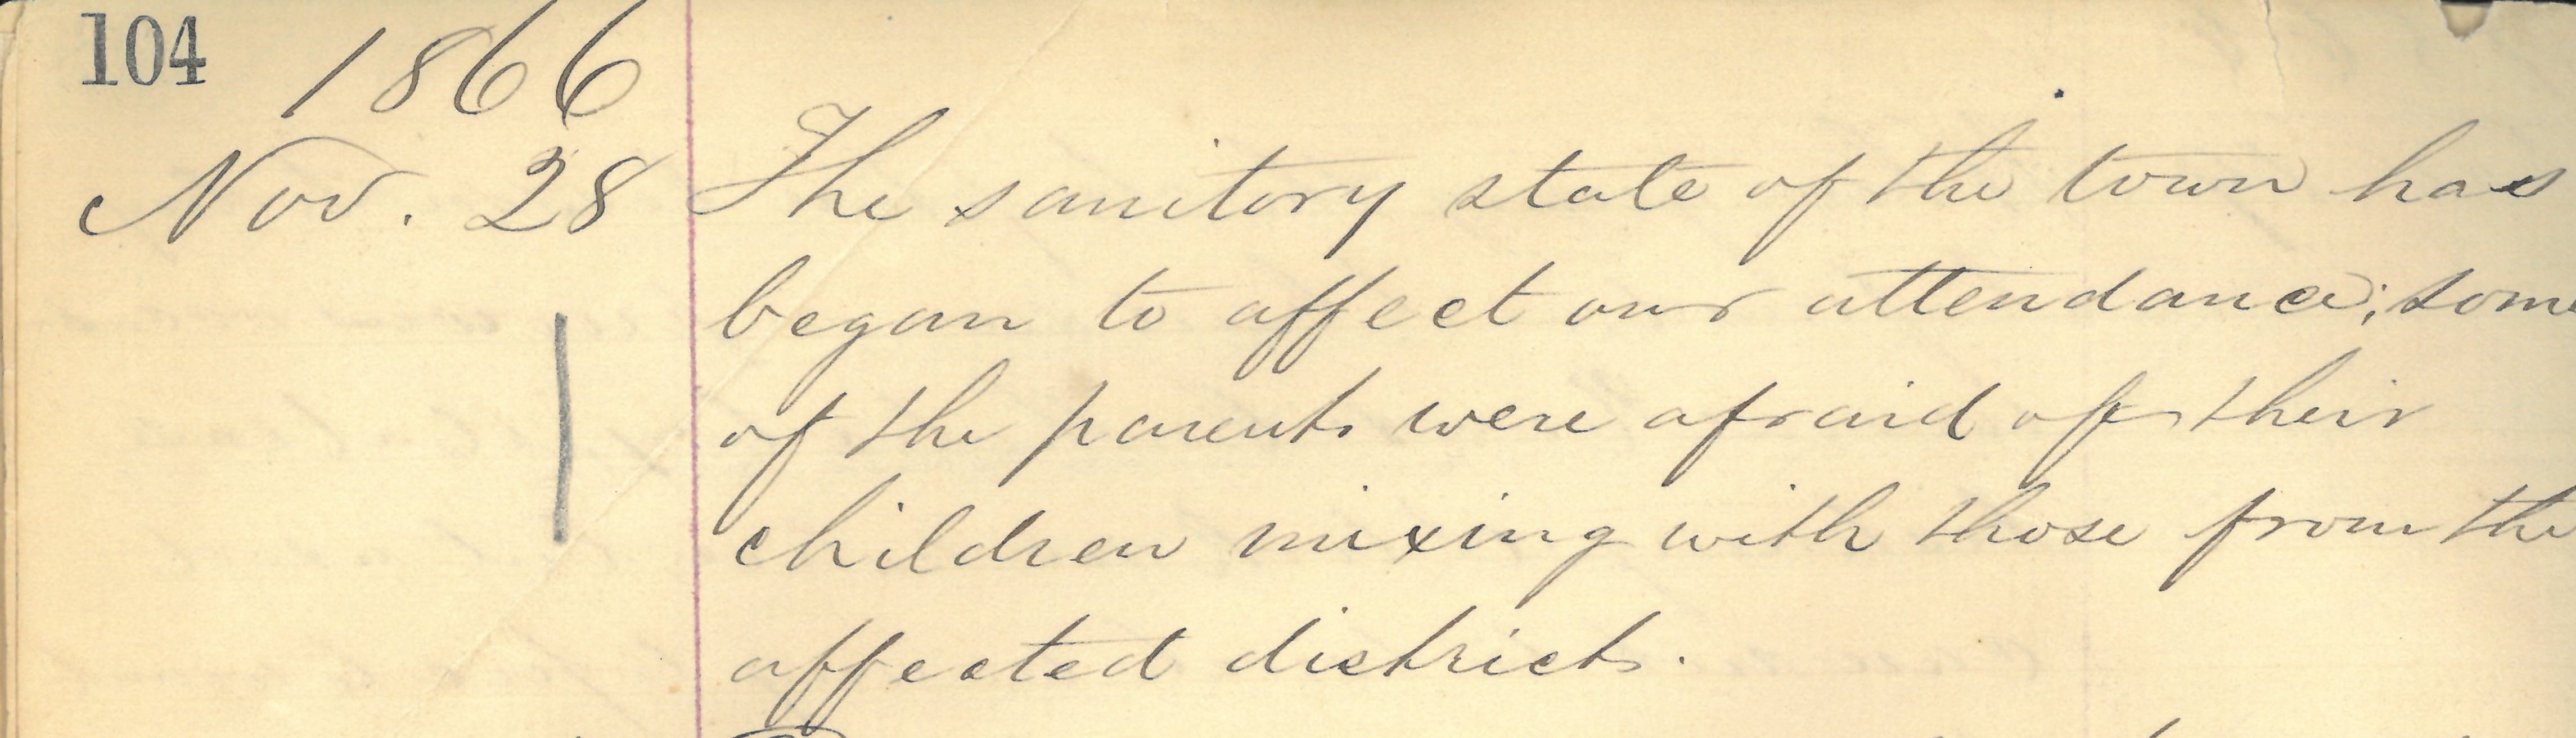 104 1866
Nov. 28 The sanitory state of the town has
began to affect our attendance; some
of the parents were afraid of their
children mixing with those from the
affected districts.